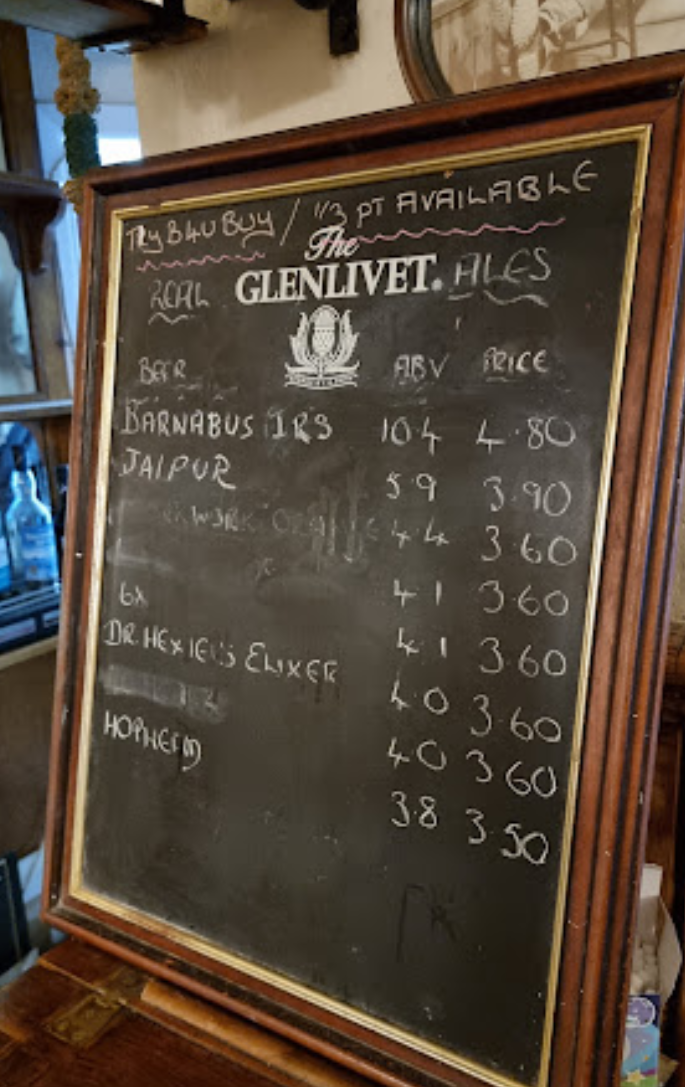 TRY B4U BUY / 1/3 PT AVAILABLE
The
REAL GLENLIVET. ALES
BEER ABV PRICE
BARNABUS IRS 10.4 4.80
JAIPUR 5 9 3.90
4.4 3.60
4 1 3.60
6X 4.1 3.60
DR. HEXIEL'S ELIXER 4.0 3.60
4 0 3 60
HOPHEAD 3.8 3.50